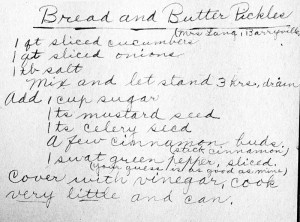 Bread and Butter Pickles
(Mrs Lang, Barryville)
1 qt sliced cucumbers
1 qt sliced onions
1 lb salt
Mix and let stand 3 hrs, drain
Add 1 cup sugar
1 ts mustard seed
1 ts celery seed
A few cinnamon buds.
(stick cinnamon)
1 swat green pepper, sliced.
(your guess is as good as mine)
Cover with vinegar, cook
very little and can.